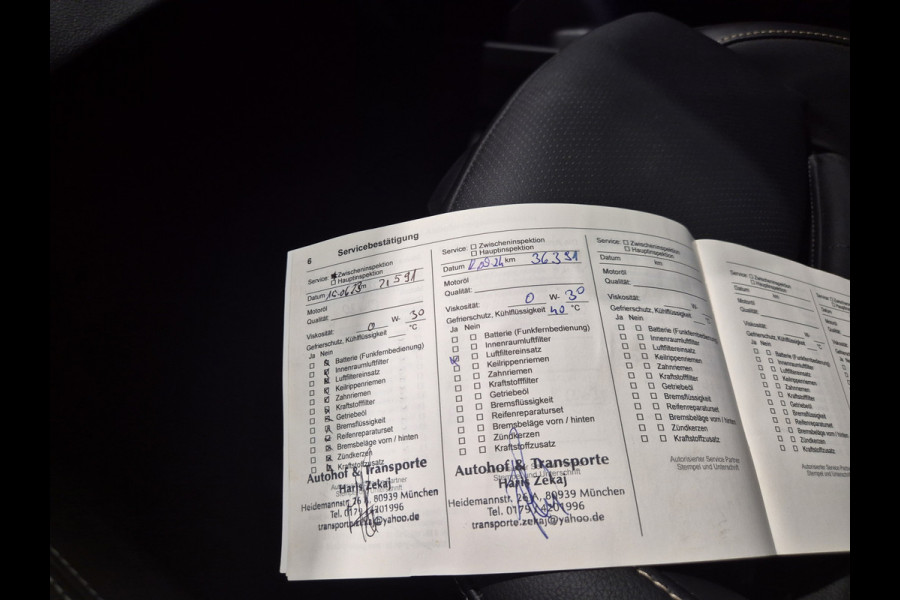 6 Servicebestätigung
Service: Zwischeninspektion
Hauptinspektion
Datum 16.06.23 km 21591
Motoröl
Qualität:
Viskosität: 0 W- 30
Gefrierschutz, Kühlflüssigkeit °C
Ja Nein
Batterie (Funkfernbedienung)
Innenraumluftfilter
Luftfiltereinsatz
Keilrippenriemen
Zahnriemen
Kraftstofffilter
Getriebeöl
Bremsflüssigkeit
Reifenreparaturset
Bremsbeläge vorn / hinten
Zündkerzen
Kraftstoffzusatz
Autohof & Transporte
Haris Zekaj
Heidemannstr. 26 A, 80939 München
Tel. 0179 4201996
transporte.zekaj@yahoo.de
Service: Zwischeninspektion
Hauptinspektion
Datum km 36391
Motoröl
Qualität:
Viskosität: 0 W- 30
Gefrierschutz, Kühlflüssigkeit 40 °C
Ja Nein
Batterie (Funkfernbedienung)
Innenraumluftfilter
Luftfiltereinsatz
Keilrippenriemen
Zahnriemen
Kraftstofffilter
Getriebeöl
Bremsflüssigkeit
Reifenreparaturset
Bremsbeläge vorn / hinten
Zündkerzen
Kraftstoffzusatz
Autohof & Transporte
Haris Zekaj
Heidemannstr. 26 A, 80939 München
Tel. 0179 4201996
transporte.zekaj@yahoo.de
Service: Zwischeninspektion
Hauptinspektion
Datum km
Motoröl
Qualität:
Viskosität: W-
Gefrierschutz, Kühlflüssigkeit
Ja Nein
Batterie (Funkfernbedienung)
Innenraumluftfilter
Luftfiltereinsatz
Keilrippenriemen
Zahnriemen
Kraftstofffilter
Getriebeöl
Bremsflüssigkeit
Reifenreparaturset
Bremsbeläge vorn / hinten
Zündkerzen
Kraftstoffzusatz
Autorisierter Service Partner
Stempel und Unterschrift
Service: Zwischeninspektion
Hauptinspektion
Datum km
Motoröl
Qualität:
Viskosität:
Gefrierschutz, Kühlflüssigkeit
Ja Nein
Batterie (Funkfernbedienung)
Innenraumluftfilter
Luftfiltereinsatz
Keilrippenriemen
Zahnriemen
Kraftstofffilter
Getriebeöl
Bremsflüssigkeit
Reifenreparaturset
Bremsbeläge vorn / hinten
Zündkerzen
Kraftstoffzusatz
Autorisierter Service Partner
Stempel und Unterschrift